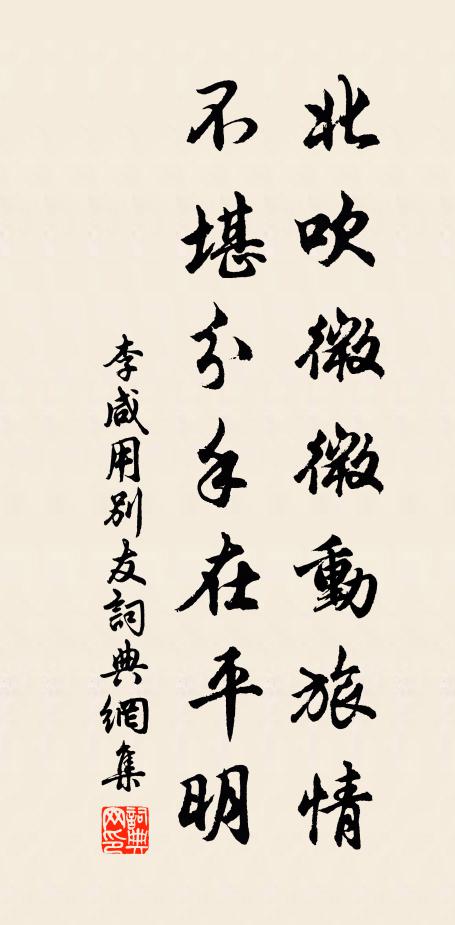 北吹微微動旅情
不堪分手在平明
李咸用別友詞典網集
詞典網印